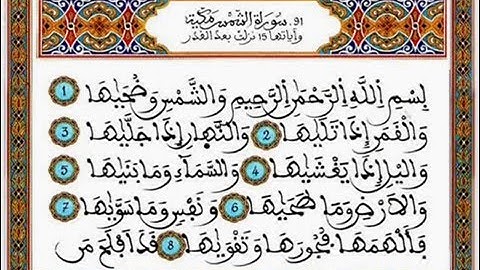 91. سورة الشمس مكية
وآياتها 15 نزلت بعد القدر
بِسْمِ اللَّهِ الرَّحْمَٰنِ الرَّحِيمِ وَالشَّمْسِ وَضُحَيٰهَا 1
وَالْقَمَرِ إِذَا تَلَيٰهَا 2 وَالنَّهَارِ إِذَا جَلَّيٰهَا 3
وَاليْلِ إِذَا يَغْشَيٰهَا 4 وَالسَّمَآءِ وَمَا بَنَيٰهَا 5
وَالَارْضِ وَمَا طَحَيٰهَا 6 وَنَفْسٍ وَمَا سَوَّيٰهَا 7
فَأَلْهَمَهَا فُجُورَهَا وَتَقْوَيٰهَا 8 قَدَ اَفْلَحَ مَن